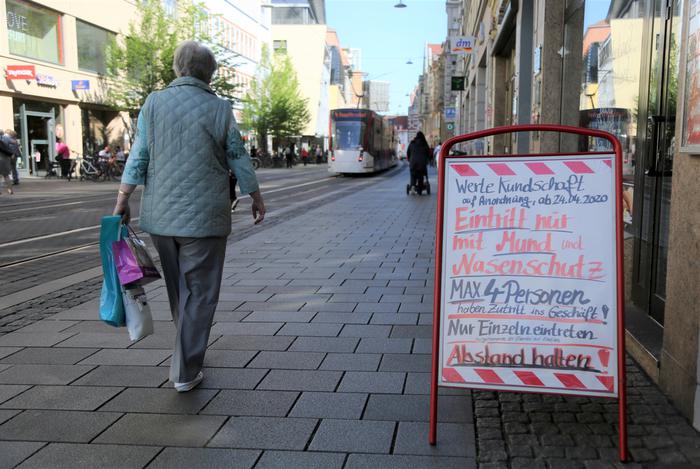 Werte Kundschaft
auf Anordnung, ab 24.04.2020
Eintritt nur
mit Mund und
Nasenschutz
MAX 4 Personen
haben Zutritt ins Geschäft!
Nur Einzeln eintreten
Abstand halten!
dm